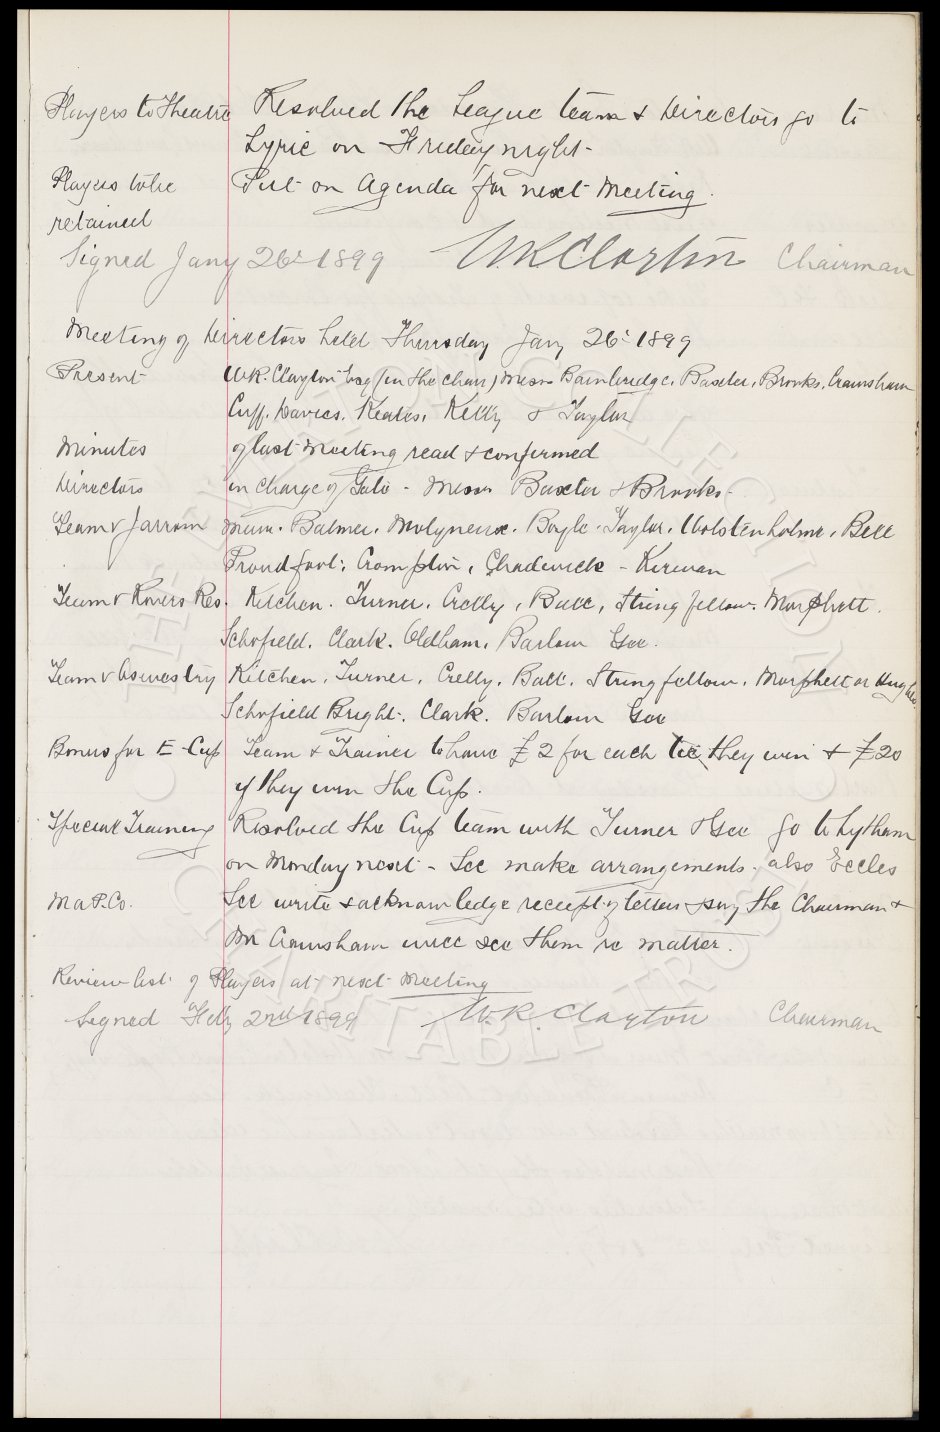 Players to Theatre Resolved the League team & Directors go to
Lyric on Friday night -
Players to be Put on Agenda for next Meeting.
retained
Signed Jany 26th 1899 W.R. Clayton Chairman
Meeting of Directors held Thursday Jany 26th 1899
Present W.R. Clayton Esq (in the chair) Messrs Bainbridge, Baxter, Brooks, Crawshaw
Cuff, Davies, Keates, Kelly & Taylor
Minutes of last Meeting read & confirmed
Directors in charge of Gate - Messrs Baxter & Brooks -
Team v Jarrow Muir. Balmer. Molyneux. Boyle. Taylor. Wolstenholme. Bell
Proudfoot, Crompton, Chadwick - Kirwan
Team v Rovers Res. Kitchen. Turner. Crelly, Ball, Stringfellow. Morphett.
Schofield. Clark. Oldham. Barlow Gee.
Team v Oswestry Kitchen. Turner. Crelly. Ball. Stringfellow. Morphett or Hughes.
Schofield Bright. Clark. Barlow Gee
Bonus for E-Cup Team & Trainer to have £2 for each tie they win & £20
if they win the Cup.
Special Training Resolved the Cup team with Turner & Gee go to Lytham
on Monday next - Sec make arrangements. also Eccles
Sec write & acknowledge receipt of letter & say the Chairman &
Mr Crawshaw will see them re matter.
Review list of Players at next Meeting
Signed Feby 2nd 1899 W.R. Clayton Chairman
THE EVERTON COLLECTION
CHARITABLE TRUST